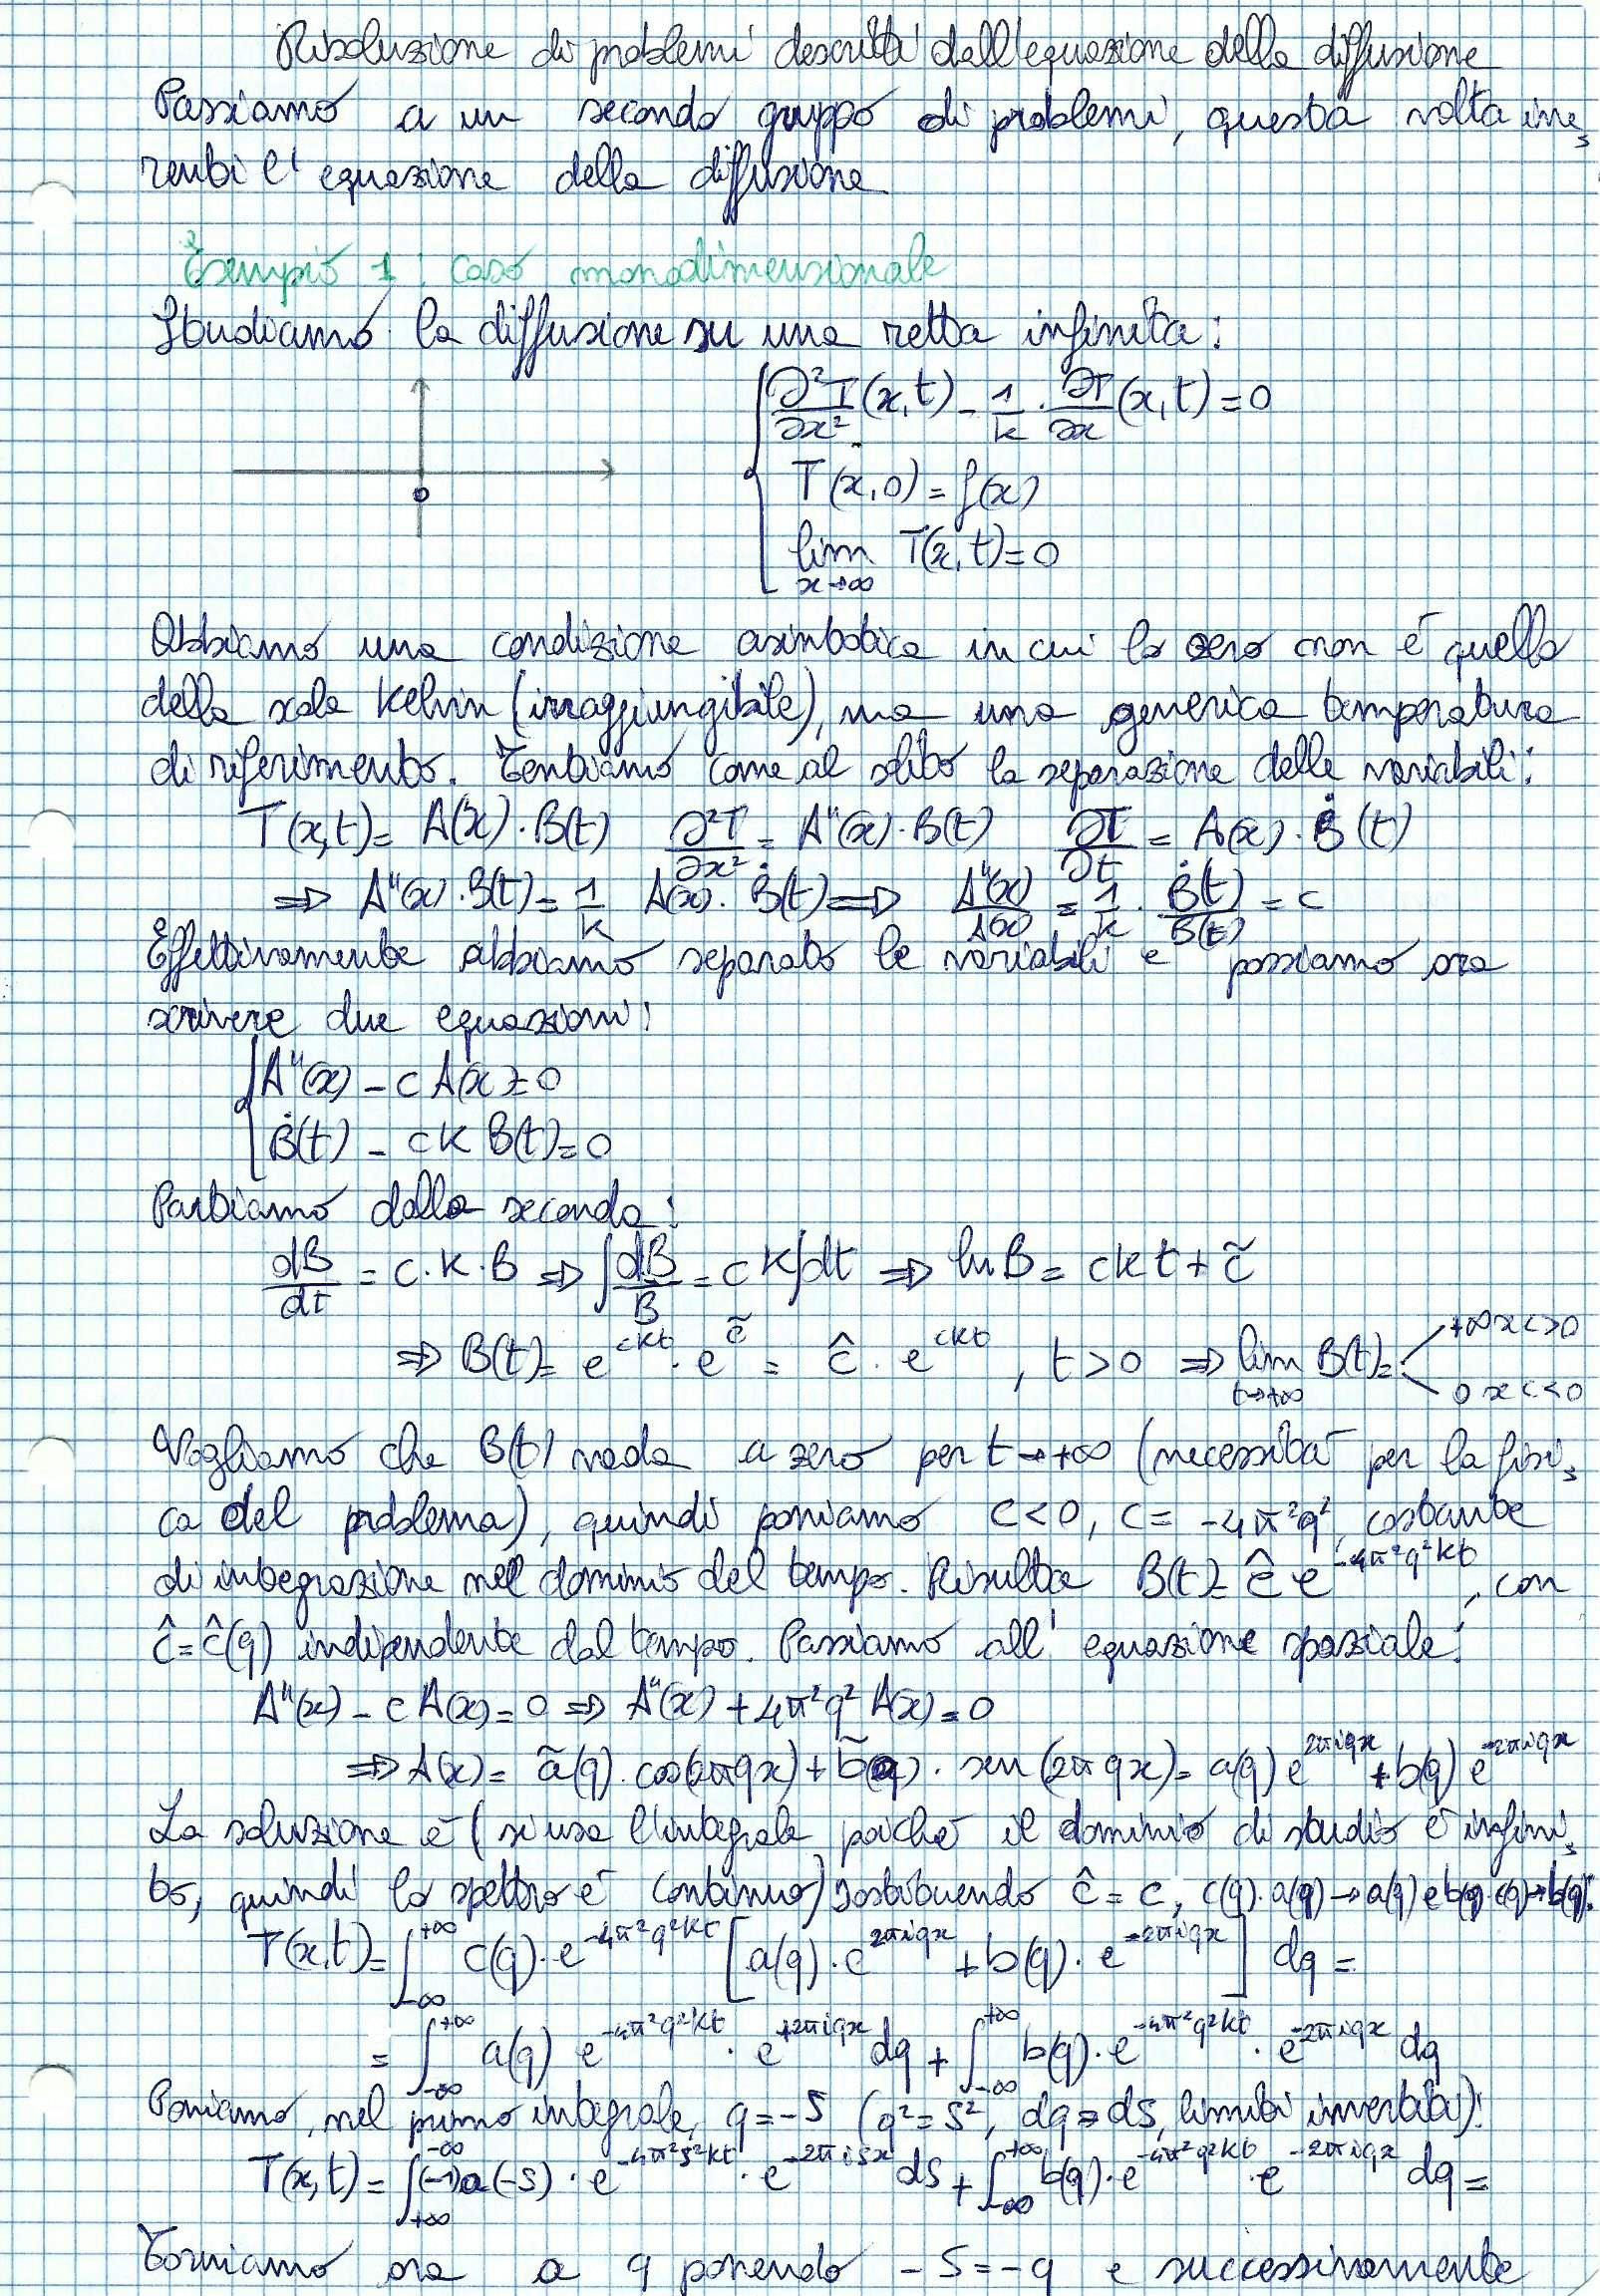 Risoluzione di problemi descritti dall'equazione della diffusione
Passiamo a un secondo gruppo di problemi, questa volta ine,
renti l'equazione della diffusione
Esempio 1: caso monodimensionale
Studiamo la diffusione su una retta infinita:
∂²T/∂x² (x,t) - 1/k · ∂T/∂x (x,t) = 0
0
T(x,0) = f(x)
lim x→∞ T(x,t) = 0
Abbiamo una condizione asintotica in cui lo zero non è quello
della scala Kelvin (irraggiungibile), ma una generica temperatura
di riferimento. Tentiamo come al solito la separazione delle variabili:
T(x,t) = A(x)·B(t) ∂²T/∂x² = A''(x)·B(t) ∂T/∂t = A(x)·Ḃ(t)
⇒ A''(x)·B(t) = 1/k A(x)·Ḃ(t) ⇒ A''(x)/A(x) = 1/k · Ḃ(t)/B(t) = c
Effettivamente abbiamo separato le variabili e possiamo ora
scrivere due equazioni:
A''(x) - c A(x) = 0
Ḃ(t) - ck B(t) = 0
Partiamo dalla seconda:
dB/dt = c·k·B ⇒ ∫dB/B = ck∫dt ⇒ ln B = ckt + c̃
⇒ B(t) = e^ckt · e^c̃ = ĉ · e^ckt, t > 0 ⇒ lim t→+∞ B(t) = +∞ x c>0
0 x c<0
Vogliamo che B(t) vada a zero per t→+∞ (necessità per la fisi,
ca del problema), quindi poniamo c<0, c = -4π²q², costante
di integrazione nel dominio del tempo. Risulta B(t) = ĉ e^-4π²q²kt, con
ĉ = ĉ(q) indipendente dal tempo. Passiamo all'equazione spaziale:
A''(x) - c A(x) = 0 ⇒ A''(x) + 4π²q² A(x) = 0
⇒ A(x) = ã(q)·cos(2πqx) + b̃(q)·sen(2πqx) = a(q) e^2πiqx + b(q) e^-2πiqx
La soluzione è (si usa l'integrale poiché il dominio di studio è infini,
to, quindi lo spettro è continuo) sostituendo ĉ = c, c(q)·a(q)→a(q) e b(q)·c(q)→b(q):
T(x,t) = ∫_-∞^+∞ c(q)·e^-4π²q²kt [a(q)·e^2πiqx + b(q)·e^-2πiqx] dq =
= ∫_-∞^+∞ a(q) e^-4π²q²kt · e^+2πiqx dq + ∫_-∞^+∞ b(q)·e^-4π²q²kt · e^-2πiqx dq
Poniamo, nel primo integrale, q = -s (q² = s², dq = ds, limiti invertiti):
T(x,t) = ∫_+∞^-∞ (-1)a(-s)·e^-4π²s²kt · e^-2πisx ds + ∫_-∞^+∞ b(q)·e^-4π²q²kt · e^-2πiqx dq =
Torniamo ora a q ponendo -s = -q e successivamente